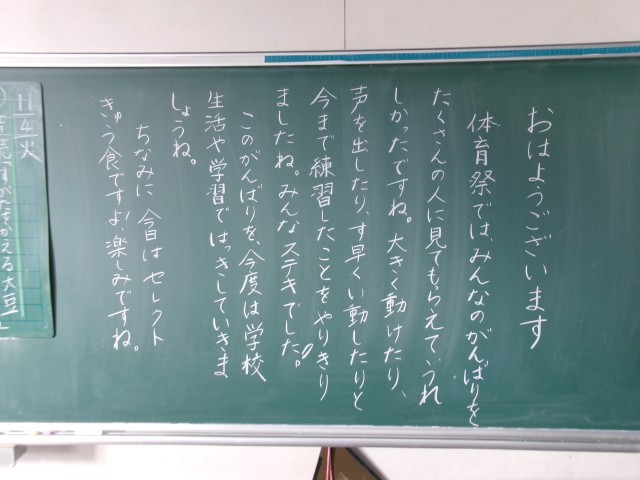 おはようございます
体育祭では、みんなのがんばりを
たくさんの人に見てもらえて、うれ
しかったですね。大きく動けたり、
声を出したり、す早くい動したりと
今まで練習したことをやりきり
ましたね。みんなステキでした!。
このがんばりを、今度は学校
生活や学習ではっきしていきま
しょうね。
ちなみに今日はセレクト
きゅう食ですよ!楽しみですね。
11/4火
音読すがたをかえる大豆